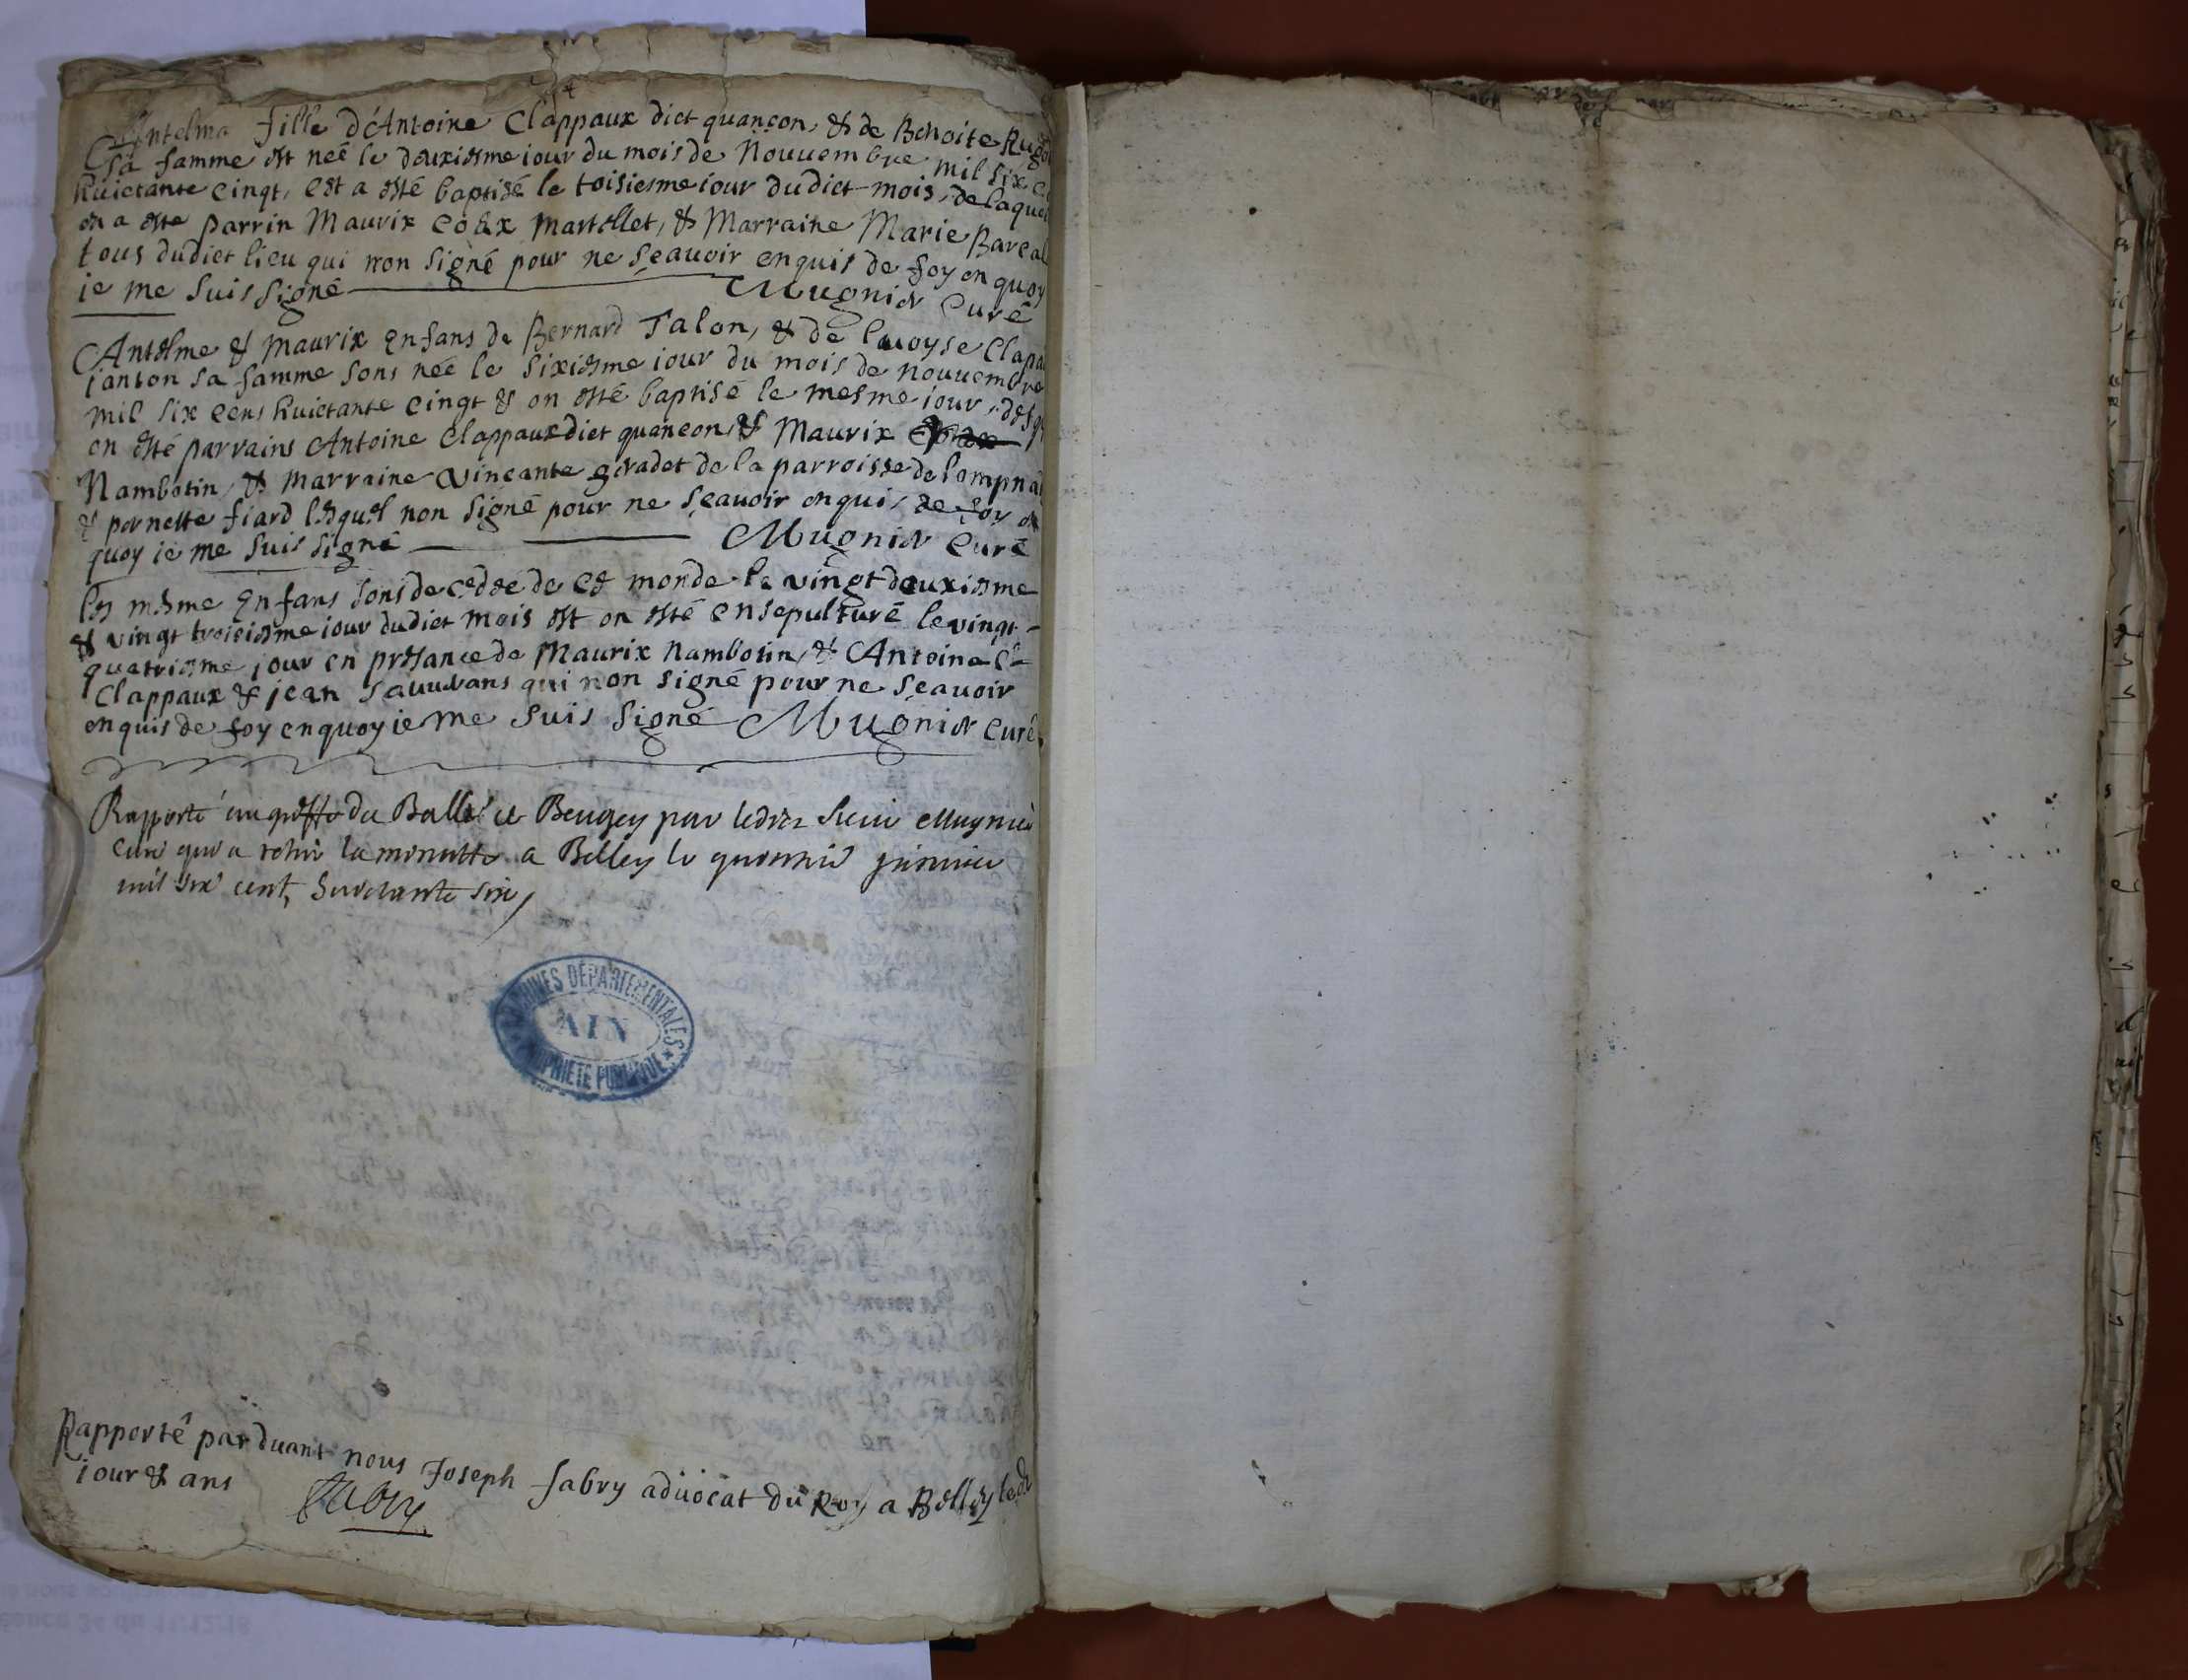 Antelma fille d'Antoine Clappaux dict quançon, & de Benoite
sa famme est neé le deuxiesme iour du mois de Nouuembre mil six
huictante cingt, est a esté baptisé le toisiesme iour dudict mois, de laquel
on a este parrin Maurix Martellet, & Marraine Marie
tous dudict lieu qui non signé pour ne sçauoir enquis de foy en quoy
ie me suis signé Mugnier Curé
Antelme & Maurix enfans de Bernard Talon, & de louoyse
janton sa famme sons neé le sixiesme iour du mois de nouuembre
mil six cens huictante cingt & on esté baptisé le mesme iour,
on esté parrains Antoine Clappaux dict quancon, & Maurix
Nambotin, & Marraine Vincante giradet de la parroisse de
& pernette fiard lesquel non signé pour ne sçauoir enquis de foy en
quoy ie me suis signé Mugnier Curé
les mesme enfans sons decedee de ce monde le vingt deuxiesme
& vingt troisiesme iour dudict mois est on esté ensepulturé le vingt-
quatriesme jour en presance de Maurix Nambotin, & Antoine
Clappaux & jean qui non signé pour ne sçauoir
enquis de foy en quoy ie me suis signé Mugnier Curé
Rapporté au greffe du Balle Beugey par ledict Mugnier
curé qui a retiré la minutte a Belley le
mil six cent, huictante six,
ARCHIVES DÉPARTEMENTALES
AIN
PROPRIETE PUBLIQUE
Rapporté par duant nous Joseph fabry aduocat du Roy a Belley
iour & ans fabry